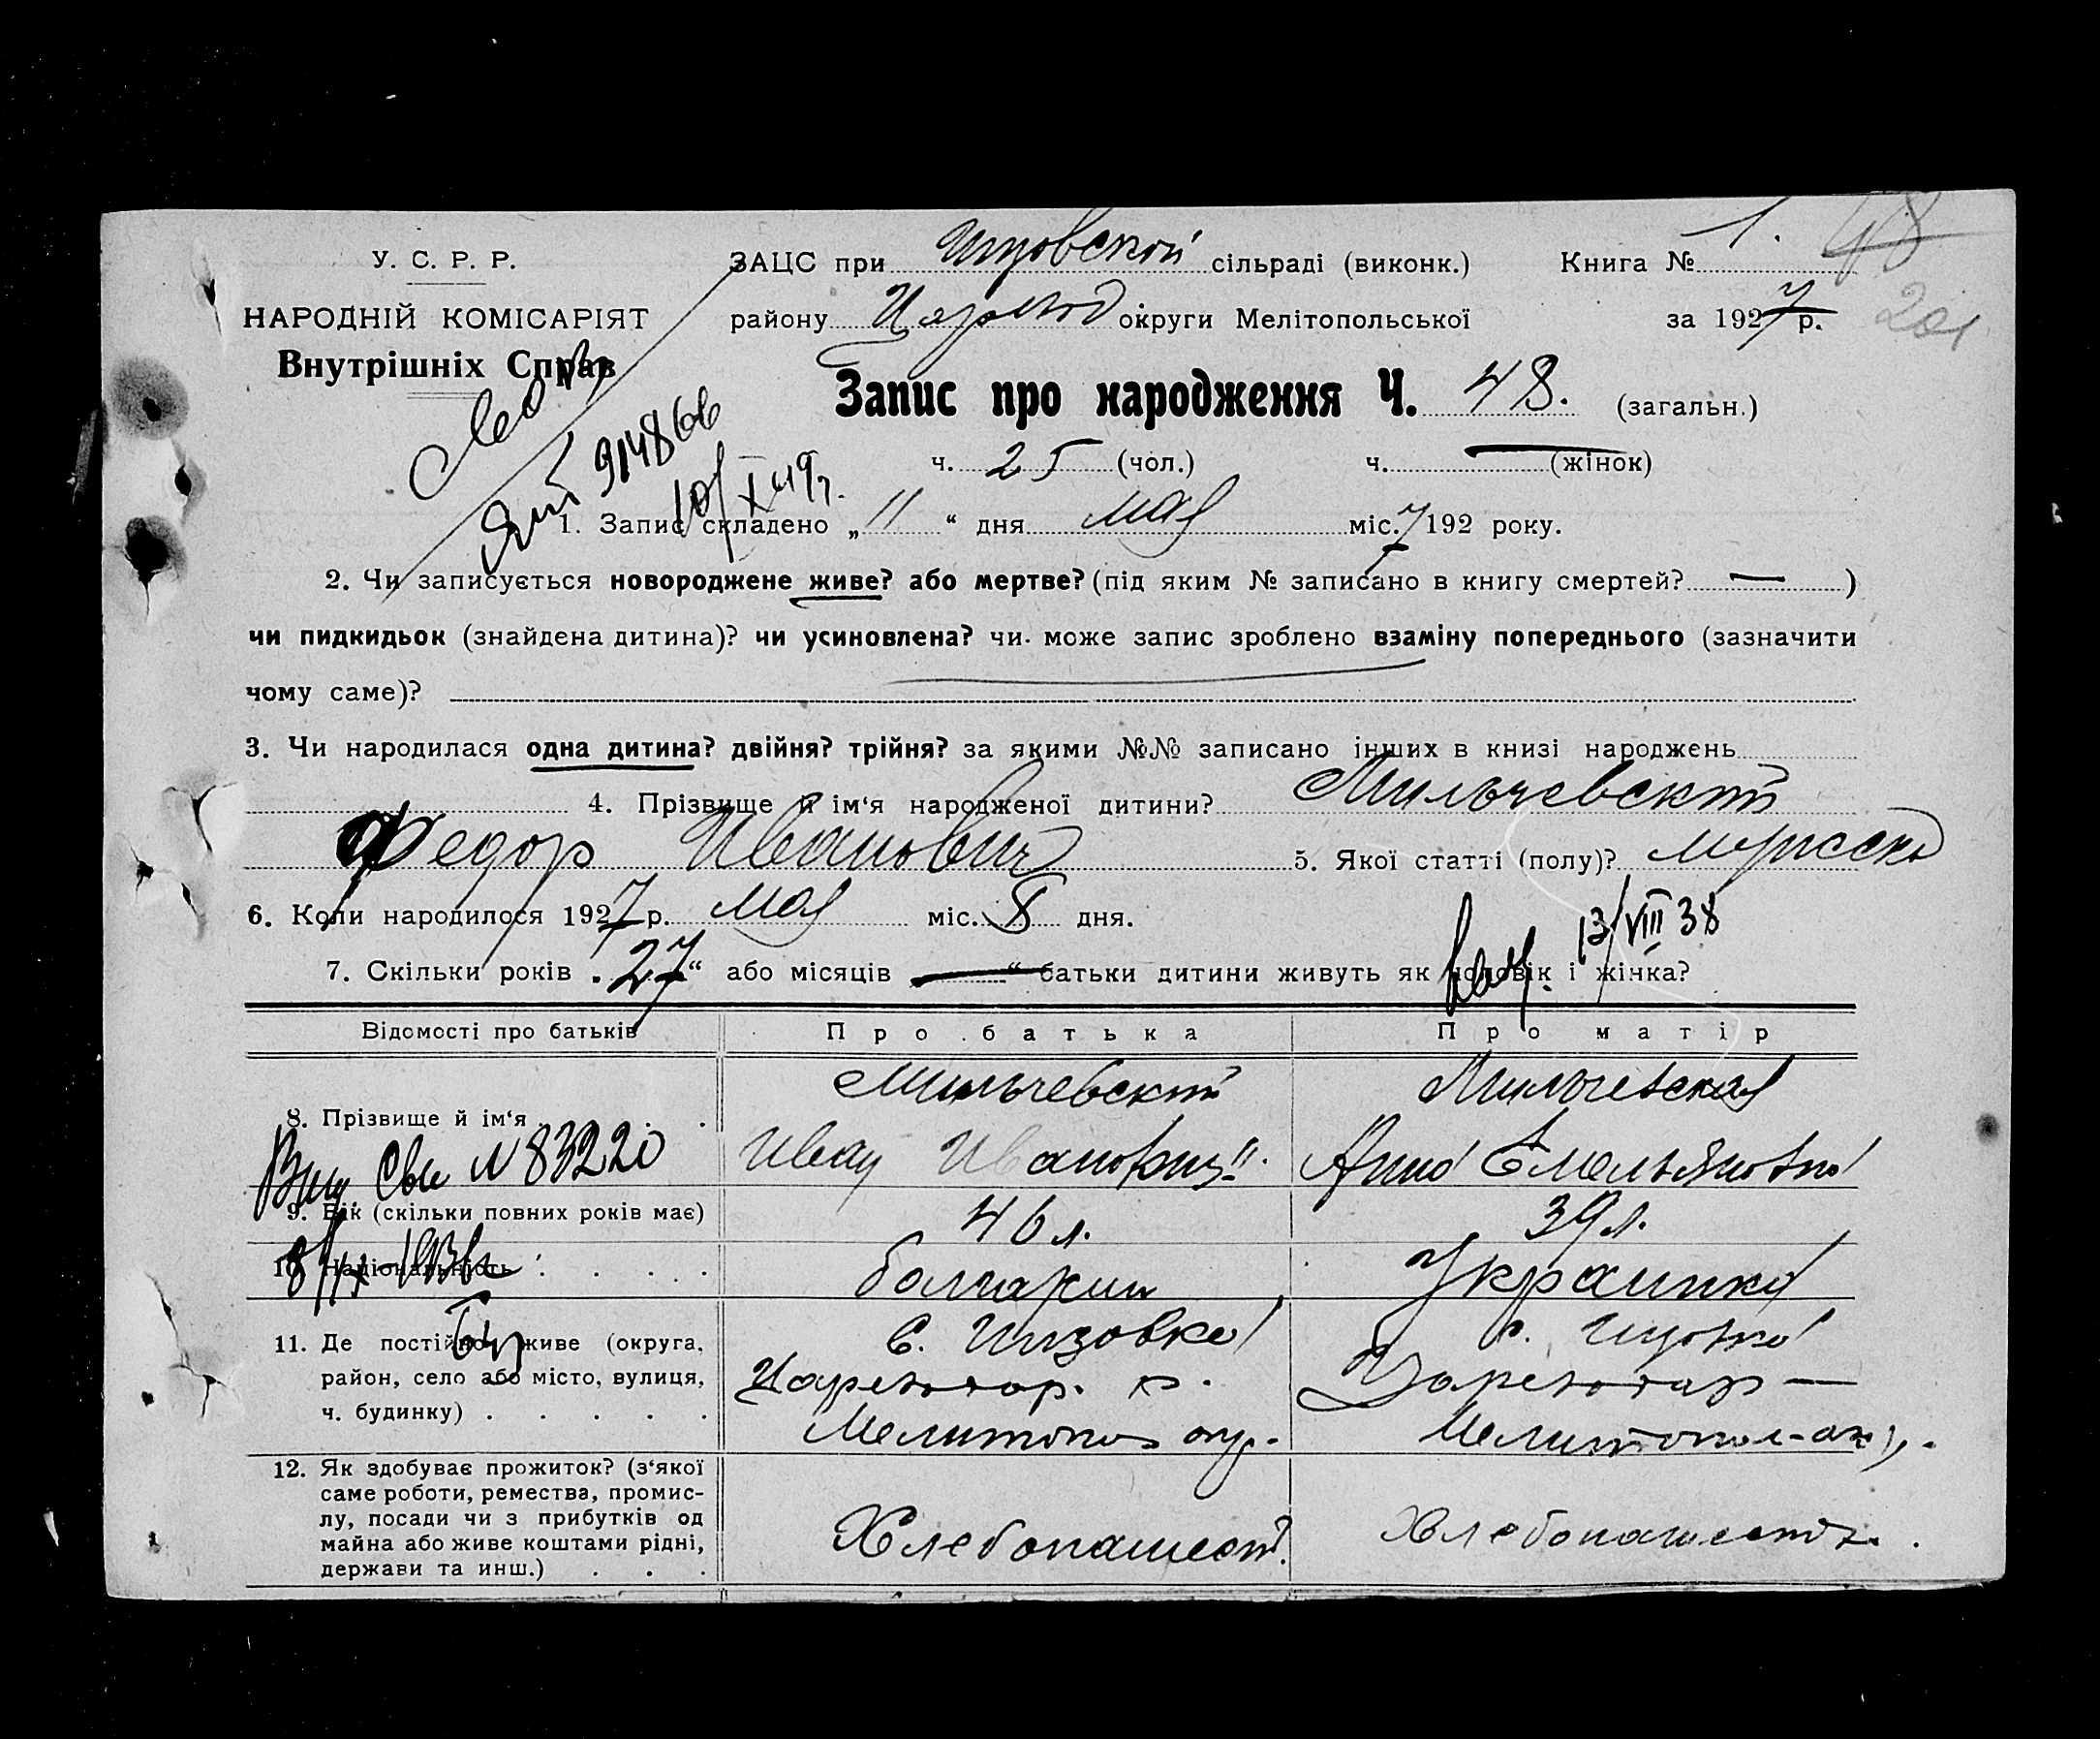 У. С. Р. Р.
НАРОДНІЙ КОМІСАРІЯТ
Внутрішніх Справ
ЗАЦС при сільраді (виконк.) Книга № 1. 48
району округи Мелітопольської за 1927 р. 201
Запис про народження Ч. 48. (загальн.)
ч. 25 (чол.) ч. — (жінок)
914866
10/X 49г.
1. Запис складено „11“ дня мая міс. 7 192 року.
2. Чи записується новороджене живе? або мертве? (під яким № записано в книгу смертей? — )
чи пидкидьок (знайдена дитина)? чи усиновлена? чи може запис зроблено взаміну попереднього (зазначити
чому саме)?
3. Чи народилася одна дитина? двійня? трійня? за якими №№ записано інших в книзі народжень
4. Прізвище й ім‘я народженої дитини? Мильчевский
Федор Иванович 5. Якої статті (полу)? мужско
6. Коли народилося 1927 р. мая міс. 8 дня.
13/VIII 38
7. Скільки років „27“ або місяців — “ батьки дитини живуть як чоловік і жінка?
Відомості про батьків Про батька Про матір
8. Прізвище й ім‘я Мильчевский Мильчевская
Иван Иванович Анна Емельяновна
Выд. Сви N 83220
9. Вік (скільки повних років має) 46 л. 39 л.
10. Національність болгарин Украинка
11. Де постійно живе (округа, район, село або місто, вулиця, ч. будинку)
с.
Мелитопол окр. Мелитопол-окр.
12. Як здобуває прожиток? (з‘якої
саме роботи, ремества, промис-
лу, посади чи з прибутків од
майна або живе коштами рідні,
держави та инш.)
Хлебопашест. Хлебопашеств.